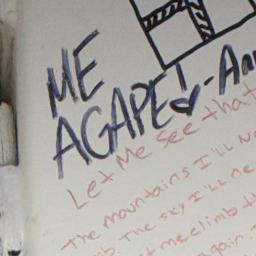 ME
AGAPE! -An
Let Me See that
The mountains I'll Ne
The Sky I'll ne
me climb th
again.